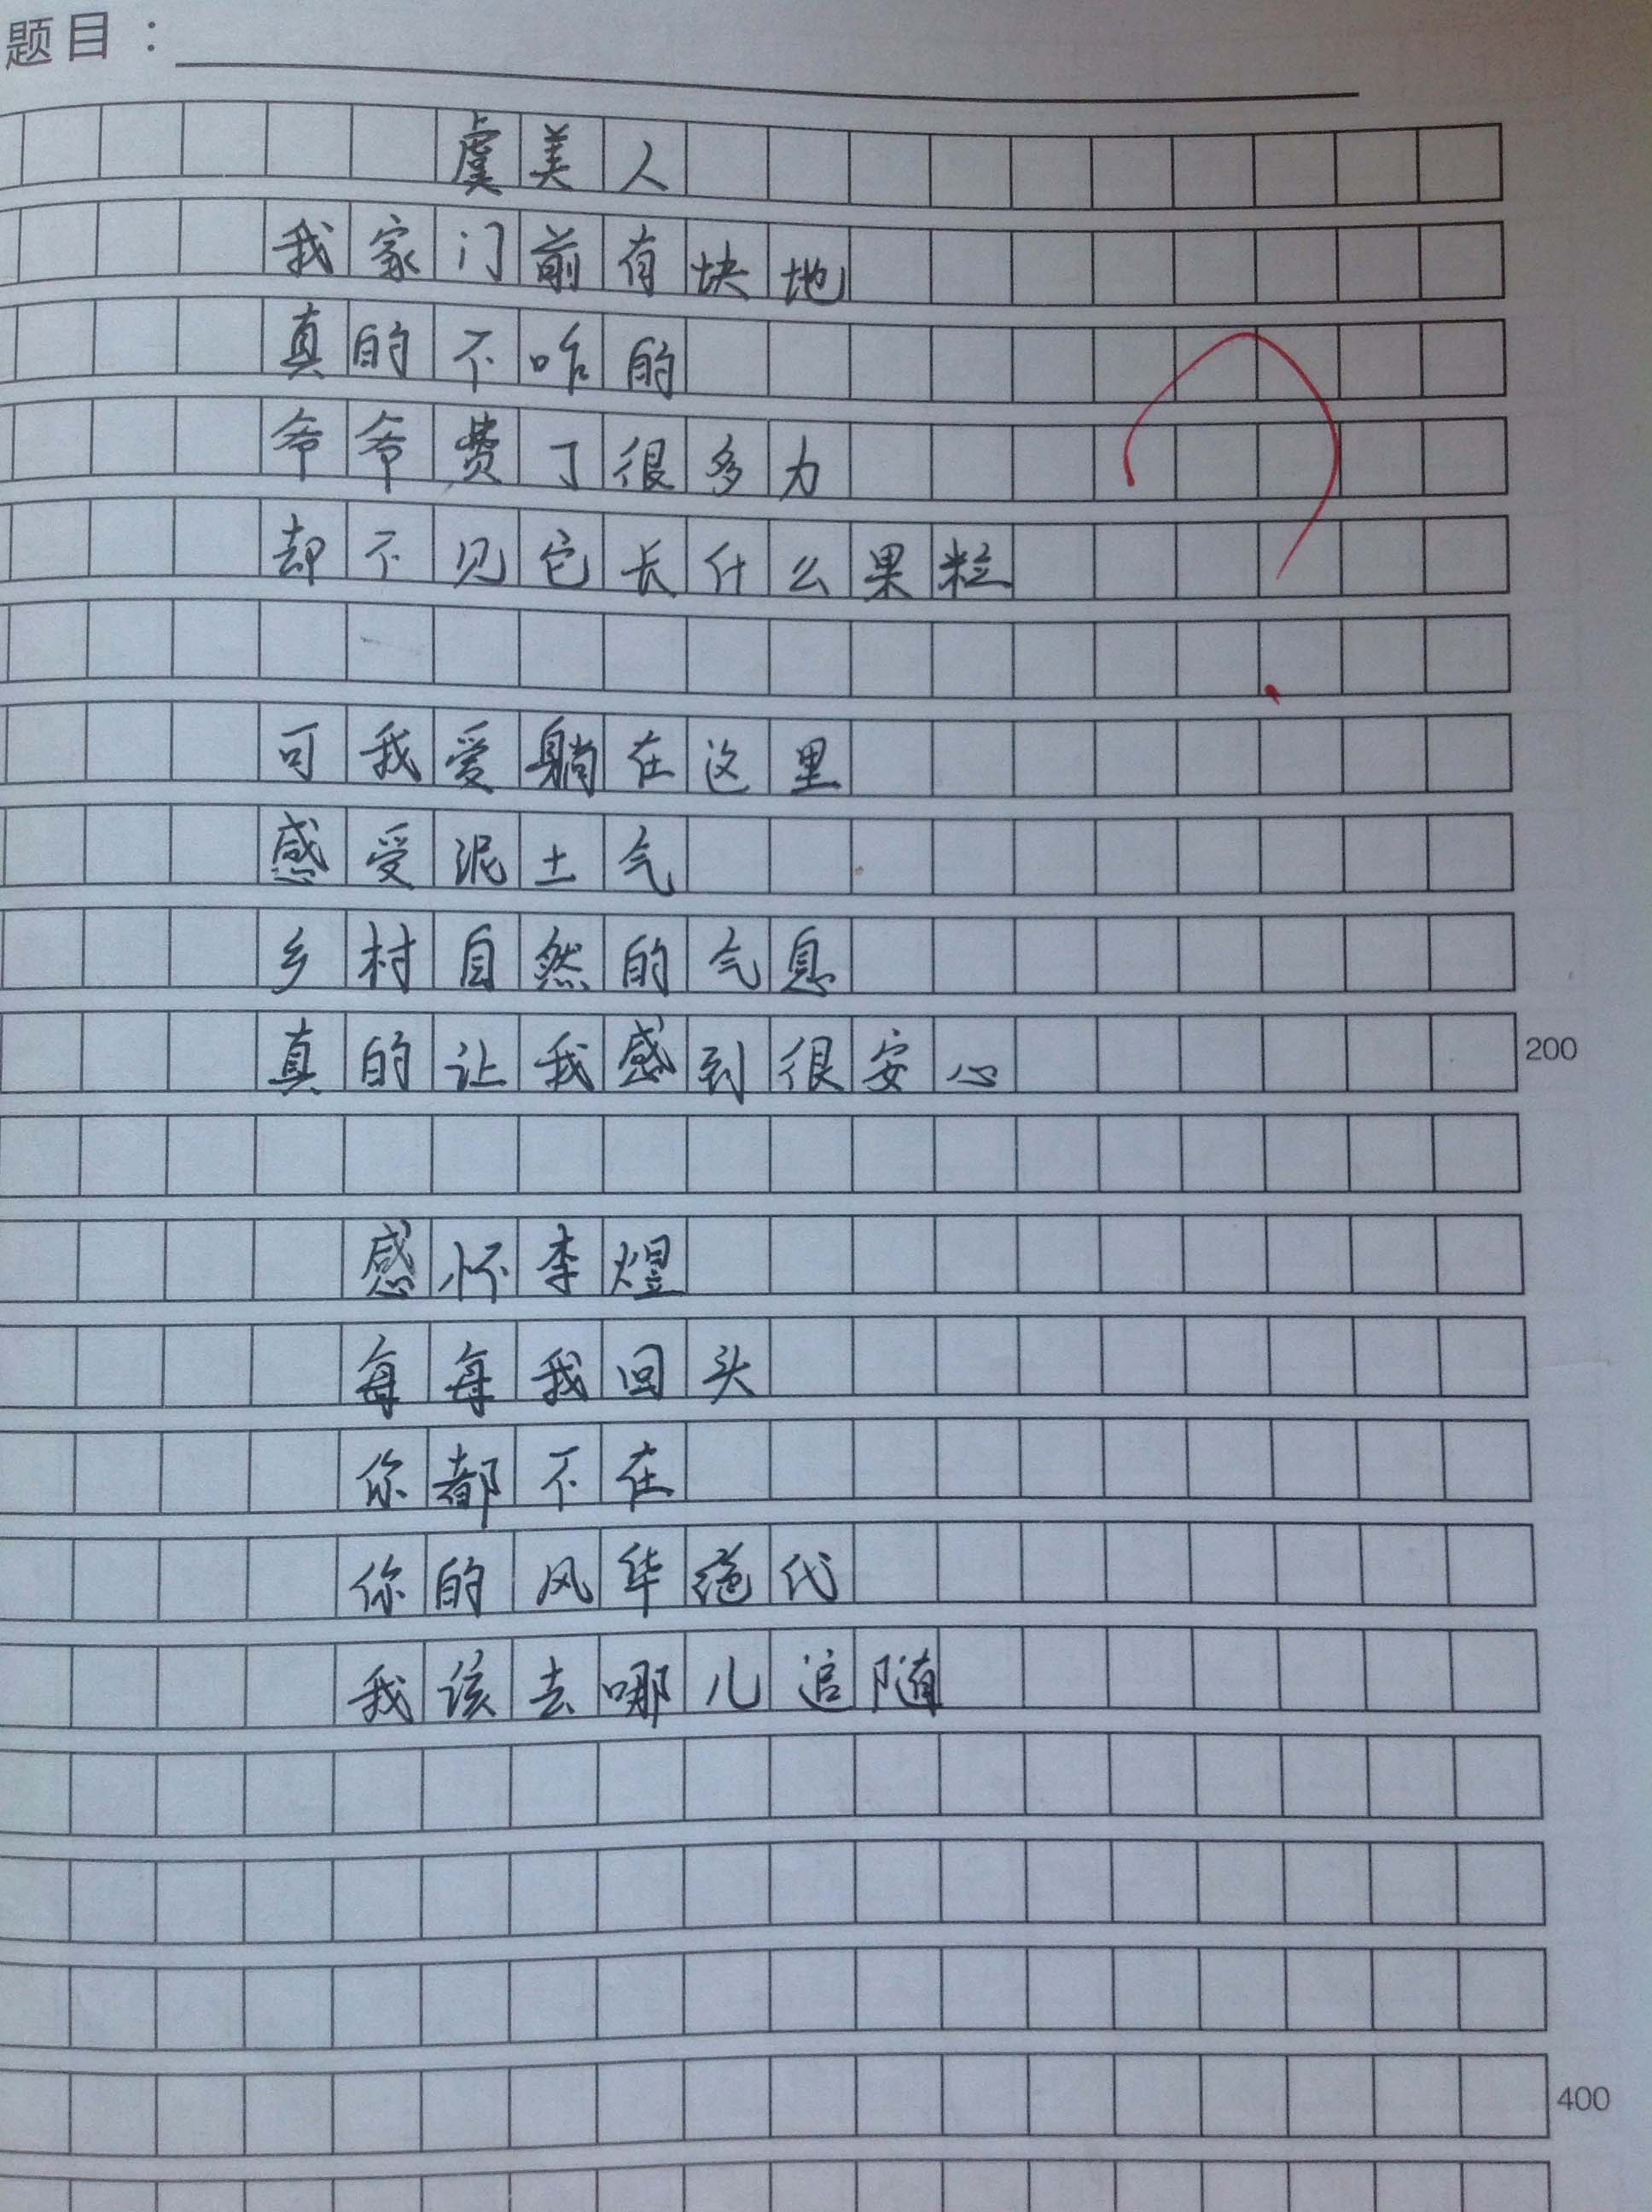 题目：
虞美人
我家门前有块地
真的不咋的
爷爷费了很多力
却不见它长什么果粒
可我爱躺在这里
感受泥土气
乡村自然的气息
真的让我感到很安心
200
感怀李煜
每每我回头
你都不在
你的风华绝代
我该去哪儿追随
400